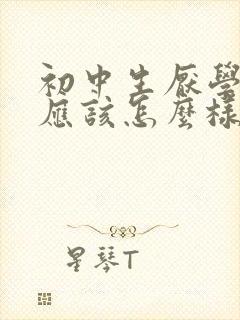 初中生厭學
應該怎麼樣
星琴T